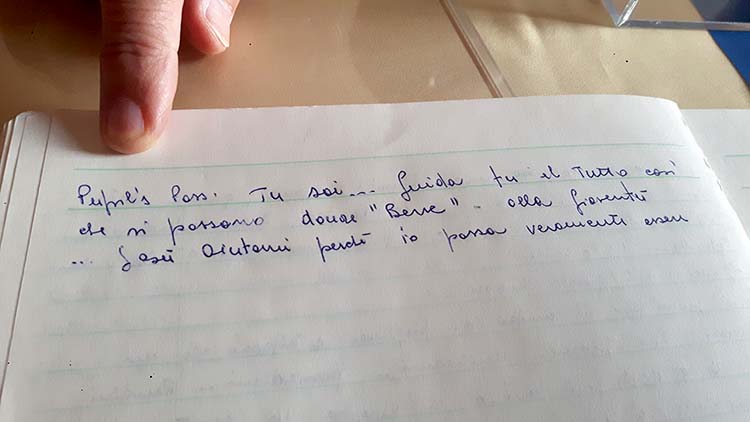 Pupil's Pass. Tu sai... Guida tu il Tutto così
che si possono donare "Bene" - alla Gioventù
... Gesù aiutami perchè io possa veramente essere